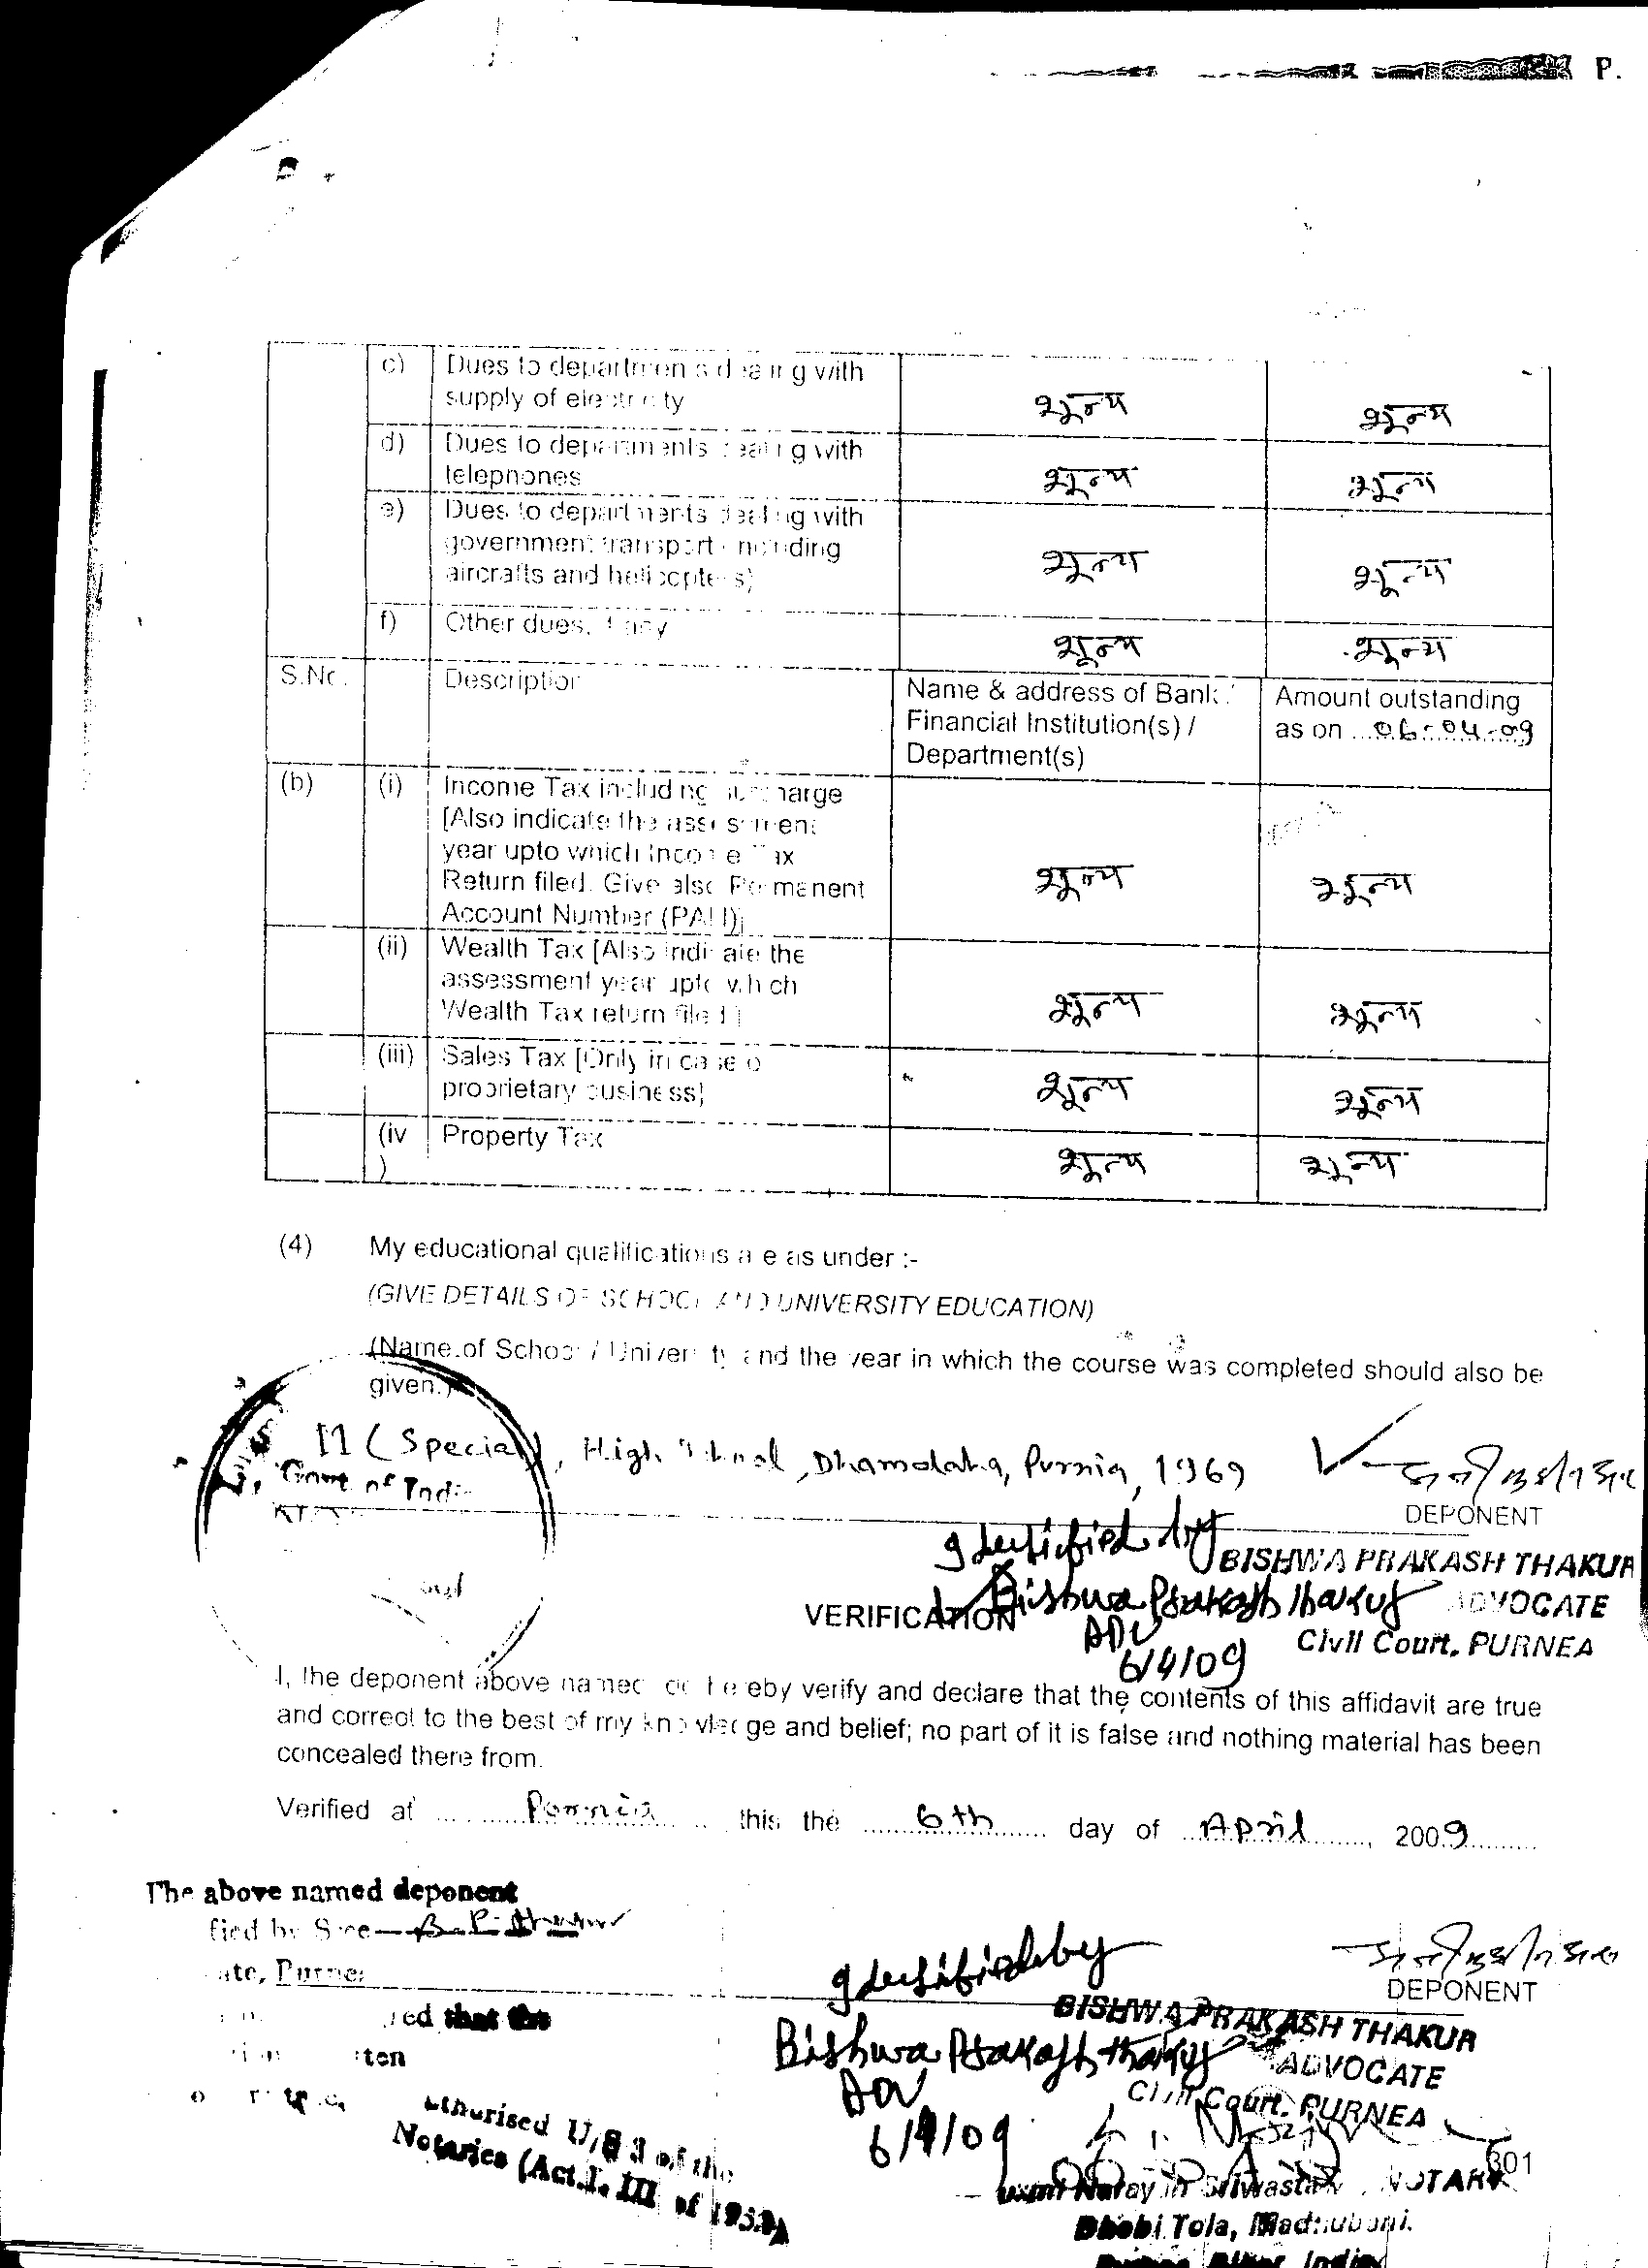 P.
c) Dues to departments dealing with
supply of electricity
शून्य शून्य
d) Dues to departments dealing with
telephones
शून्य शून्य
e) Dues to departments dealing with
government transport (including
aircrafts and helicopters)
शून्य शून्य
f) Other dues, if any
शून्य शून्य
S.No. Description
Name & address of Bank /
Financial Institution(s) /
Department(s)
Amount outstanding
as on ...06-04-09
(b) (i) Income Tax including surcharge
[Also indicate the assessment
year upto which Income Tax
Return filed. Give also Permanent
Account Number (PAN)]
शून्य शून्य
(ii) Wealth Tax [Also indicate the
assessment year upto which
Wealth Tax return filed]
शून्य शून्य
(iii) Sales Tax [Only in case of
proprietary business]
शून्य शून्य
(iv) Property Tax
शून्य शून्य
(4) My educational qualifications are as under :-
(GIVE DETAILS OF SCHOOL AND UNIVERSITY EDUCATION)
(Name of School / University and the year in which the course was completed should also be
given.)
11 (Special), High School, Dhamdaha, Purnia, 1969
Govt of India
DEPONENT
BISHWA PRAKASH THAKUR
ADVOCATE
Civil Court, PURNEA
Identified by
Bishwa Prakash Thakur
ADV
6/4/09
VERIFICATION
I, the deponent above named do hereby verify and declare that the contents of this affidavit are true
and correct to the best of my knowledge and belief; no part of it is false and nothing material has been
concealed there from.
Verified at Purnia this the 6th day of April, 2009
The above named deponent
fied by Sree B. P. Thakur
ate, Purnea
red that the
DEPONENT
Identified by
Bishwa Prakash Thakur
ADV
6/4/09
BISHWA PRAKASH THAKUR
ADVOCATE
Civil Court, PURNEA
Authorised U/S 3 of the
Notaries (Act.
601
NOTARY
Dhobi Tola, Madhubani.